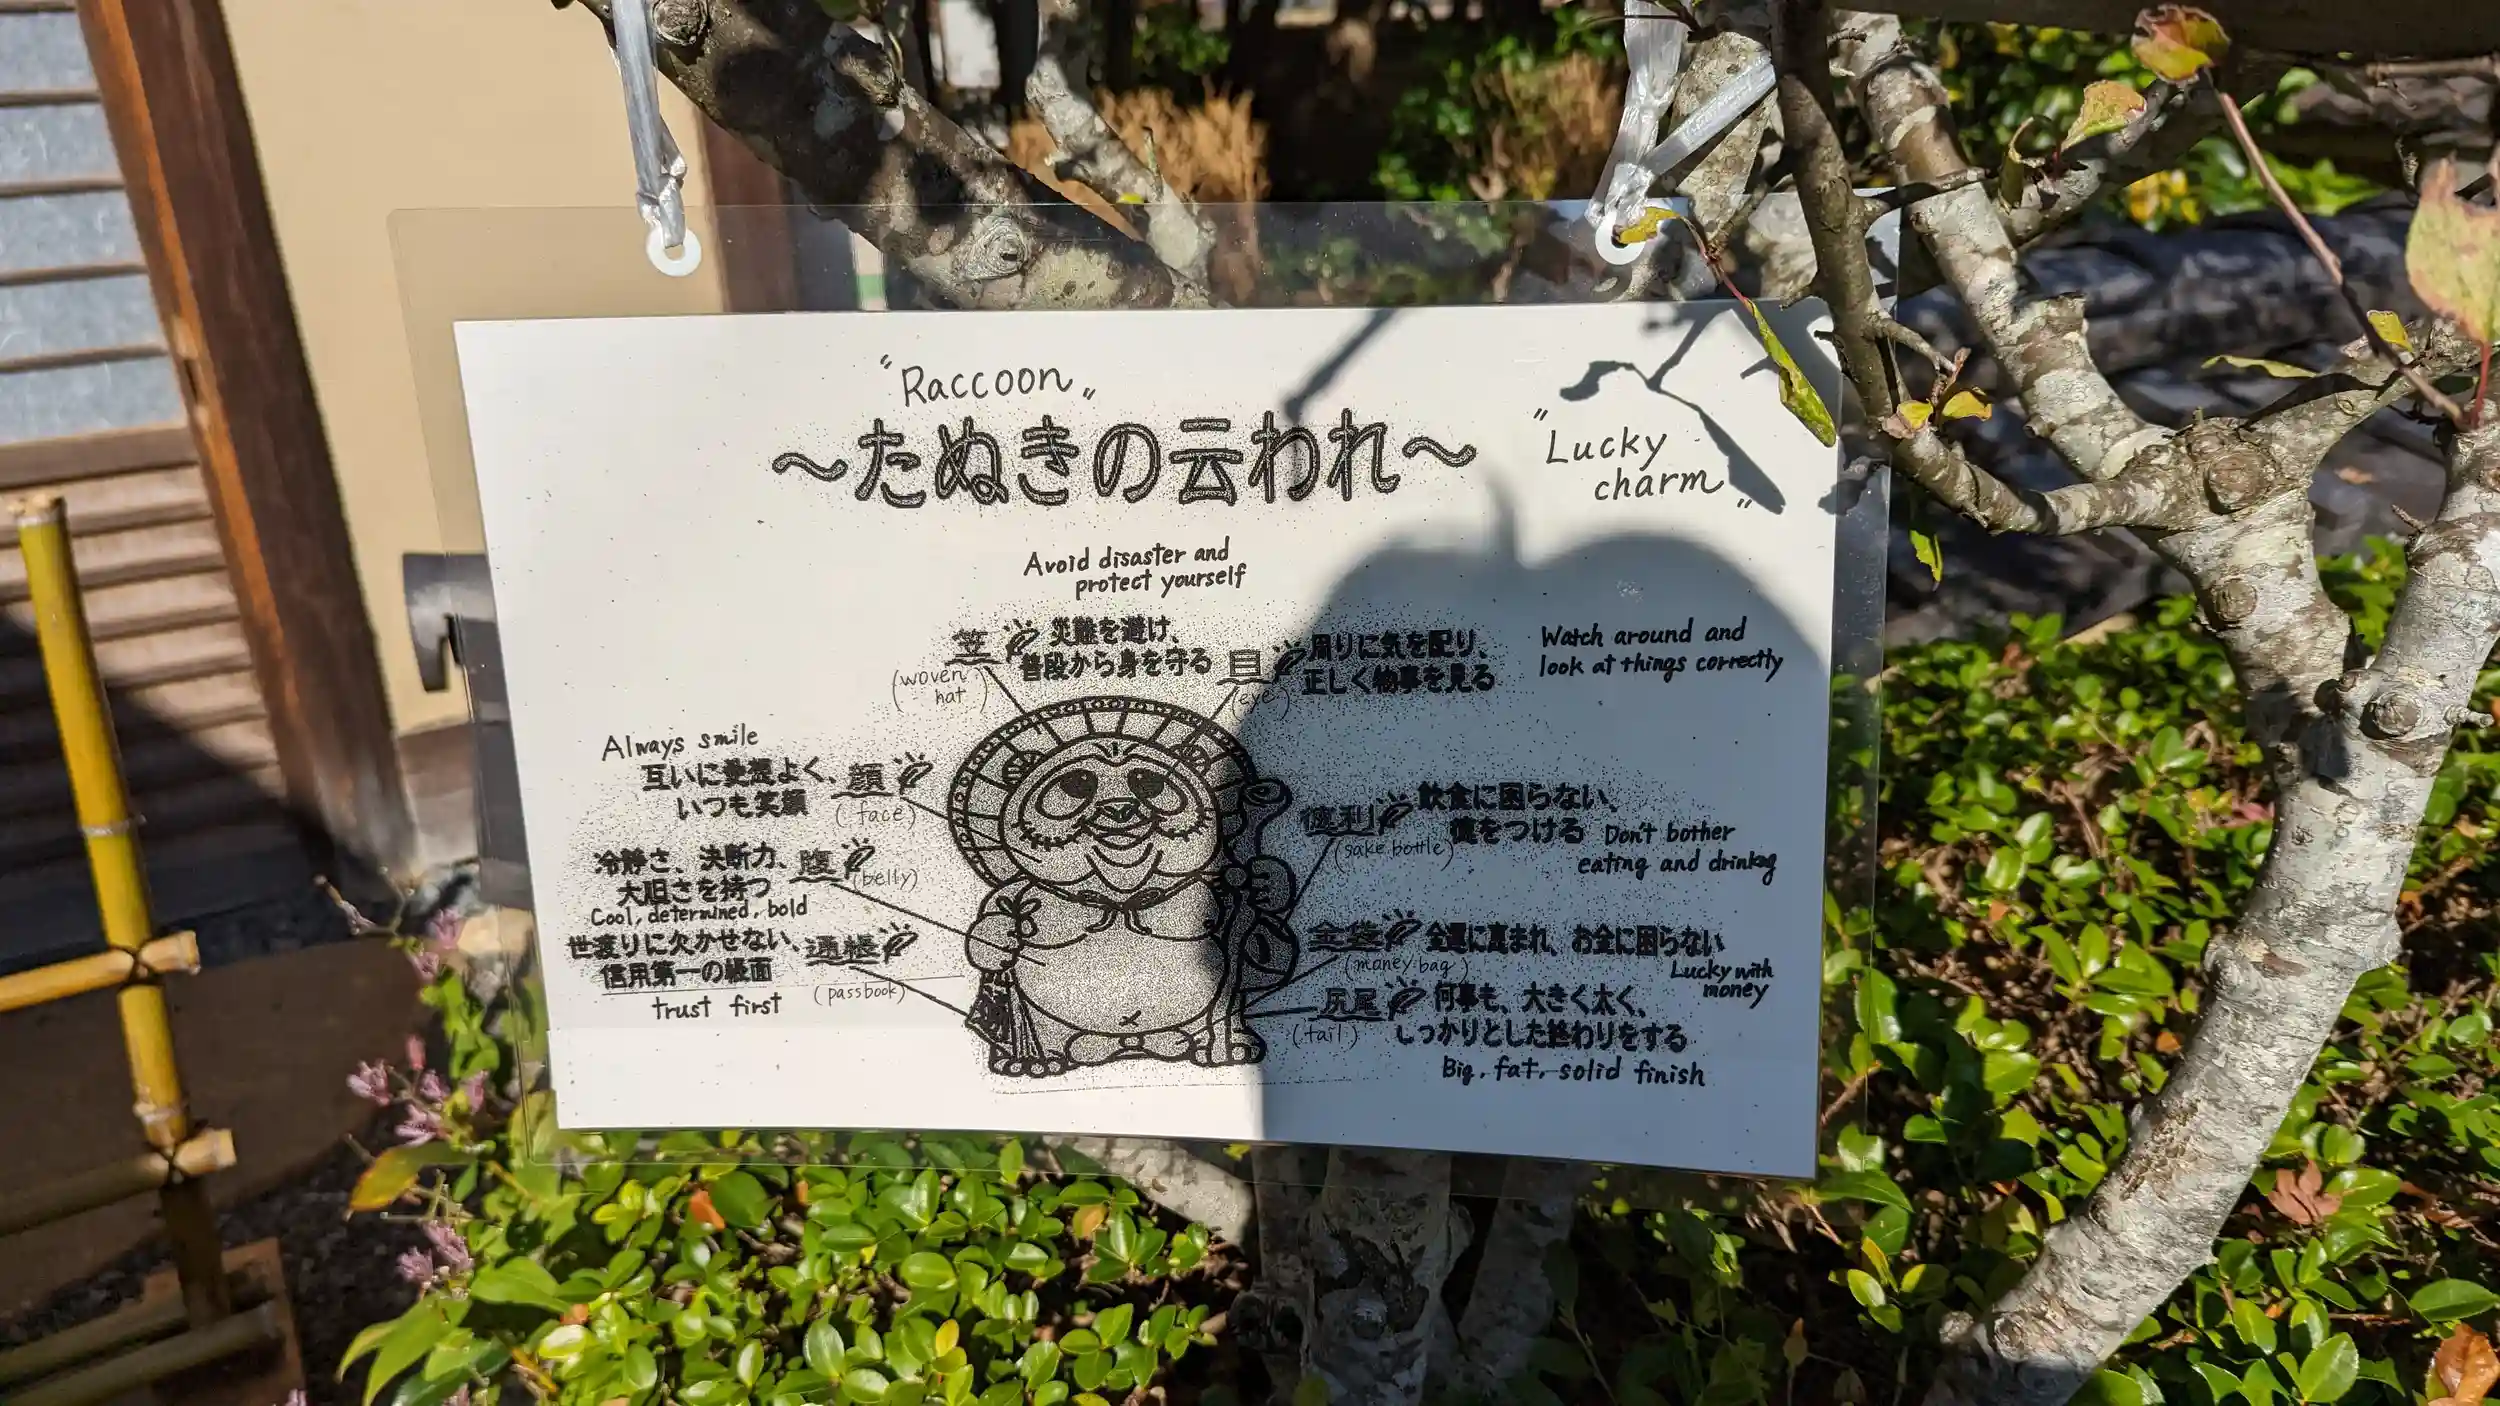 "Raccoon"
〜たぬきの云われ〜
"Lucky
charm"
Avoid disaster and
protect yourself
笠
(woven
hat)
災難を避け、
普段から身を守る
目
(eye)
周りに気を配り、
正しく物事を見る
Watch around and
look at things correctly
Always smile
互いに愛想よく、
いつも笑顔
顔
(face)
冷静さ、決断力、
大胆さを持つ
腹
(belly)
Cool, determined, bold
世渡りに欠かせない、
信用第一の帳面
通帳
(passbook)
trust first
徳利
(sake bottle)
飲食に困らない、
徳をつける
Don't bother
eating and drinking
金袋
(money bag)
金運に恵まれ、お金に困らない
Lucky with
money
尻尾
(tail)
何事も、大きく太く、
しっかりとした終わりをする
Big, fat, solid finish